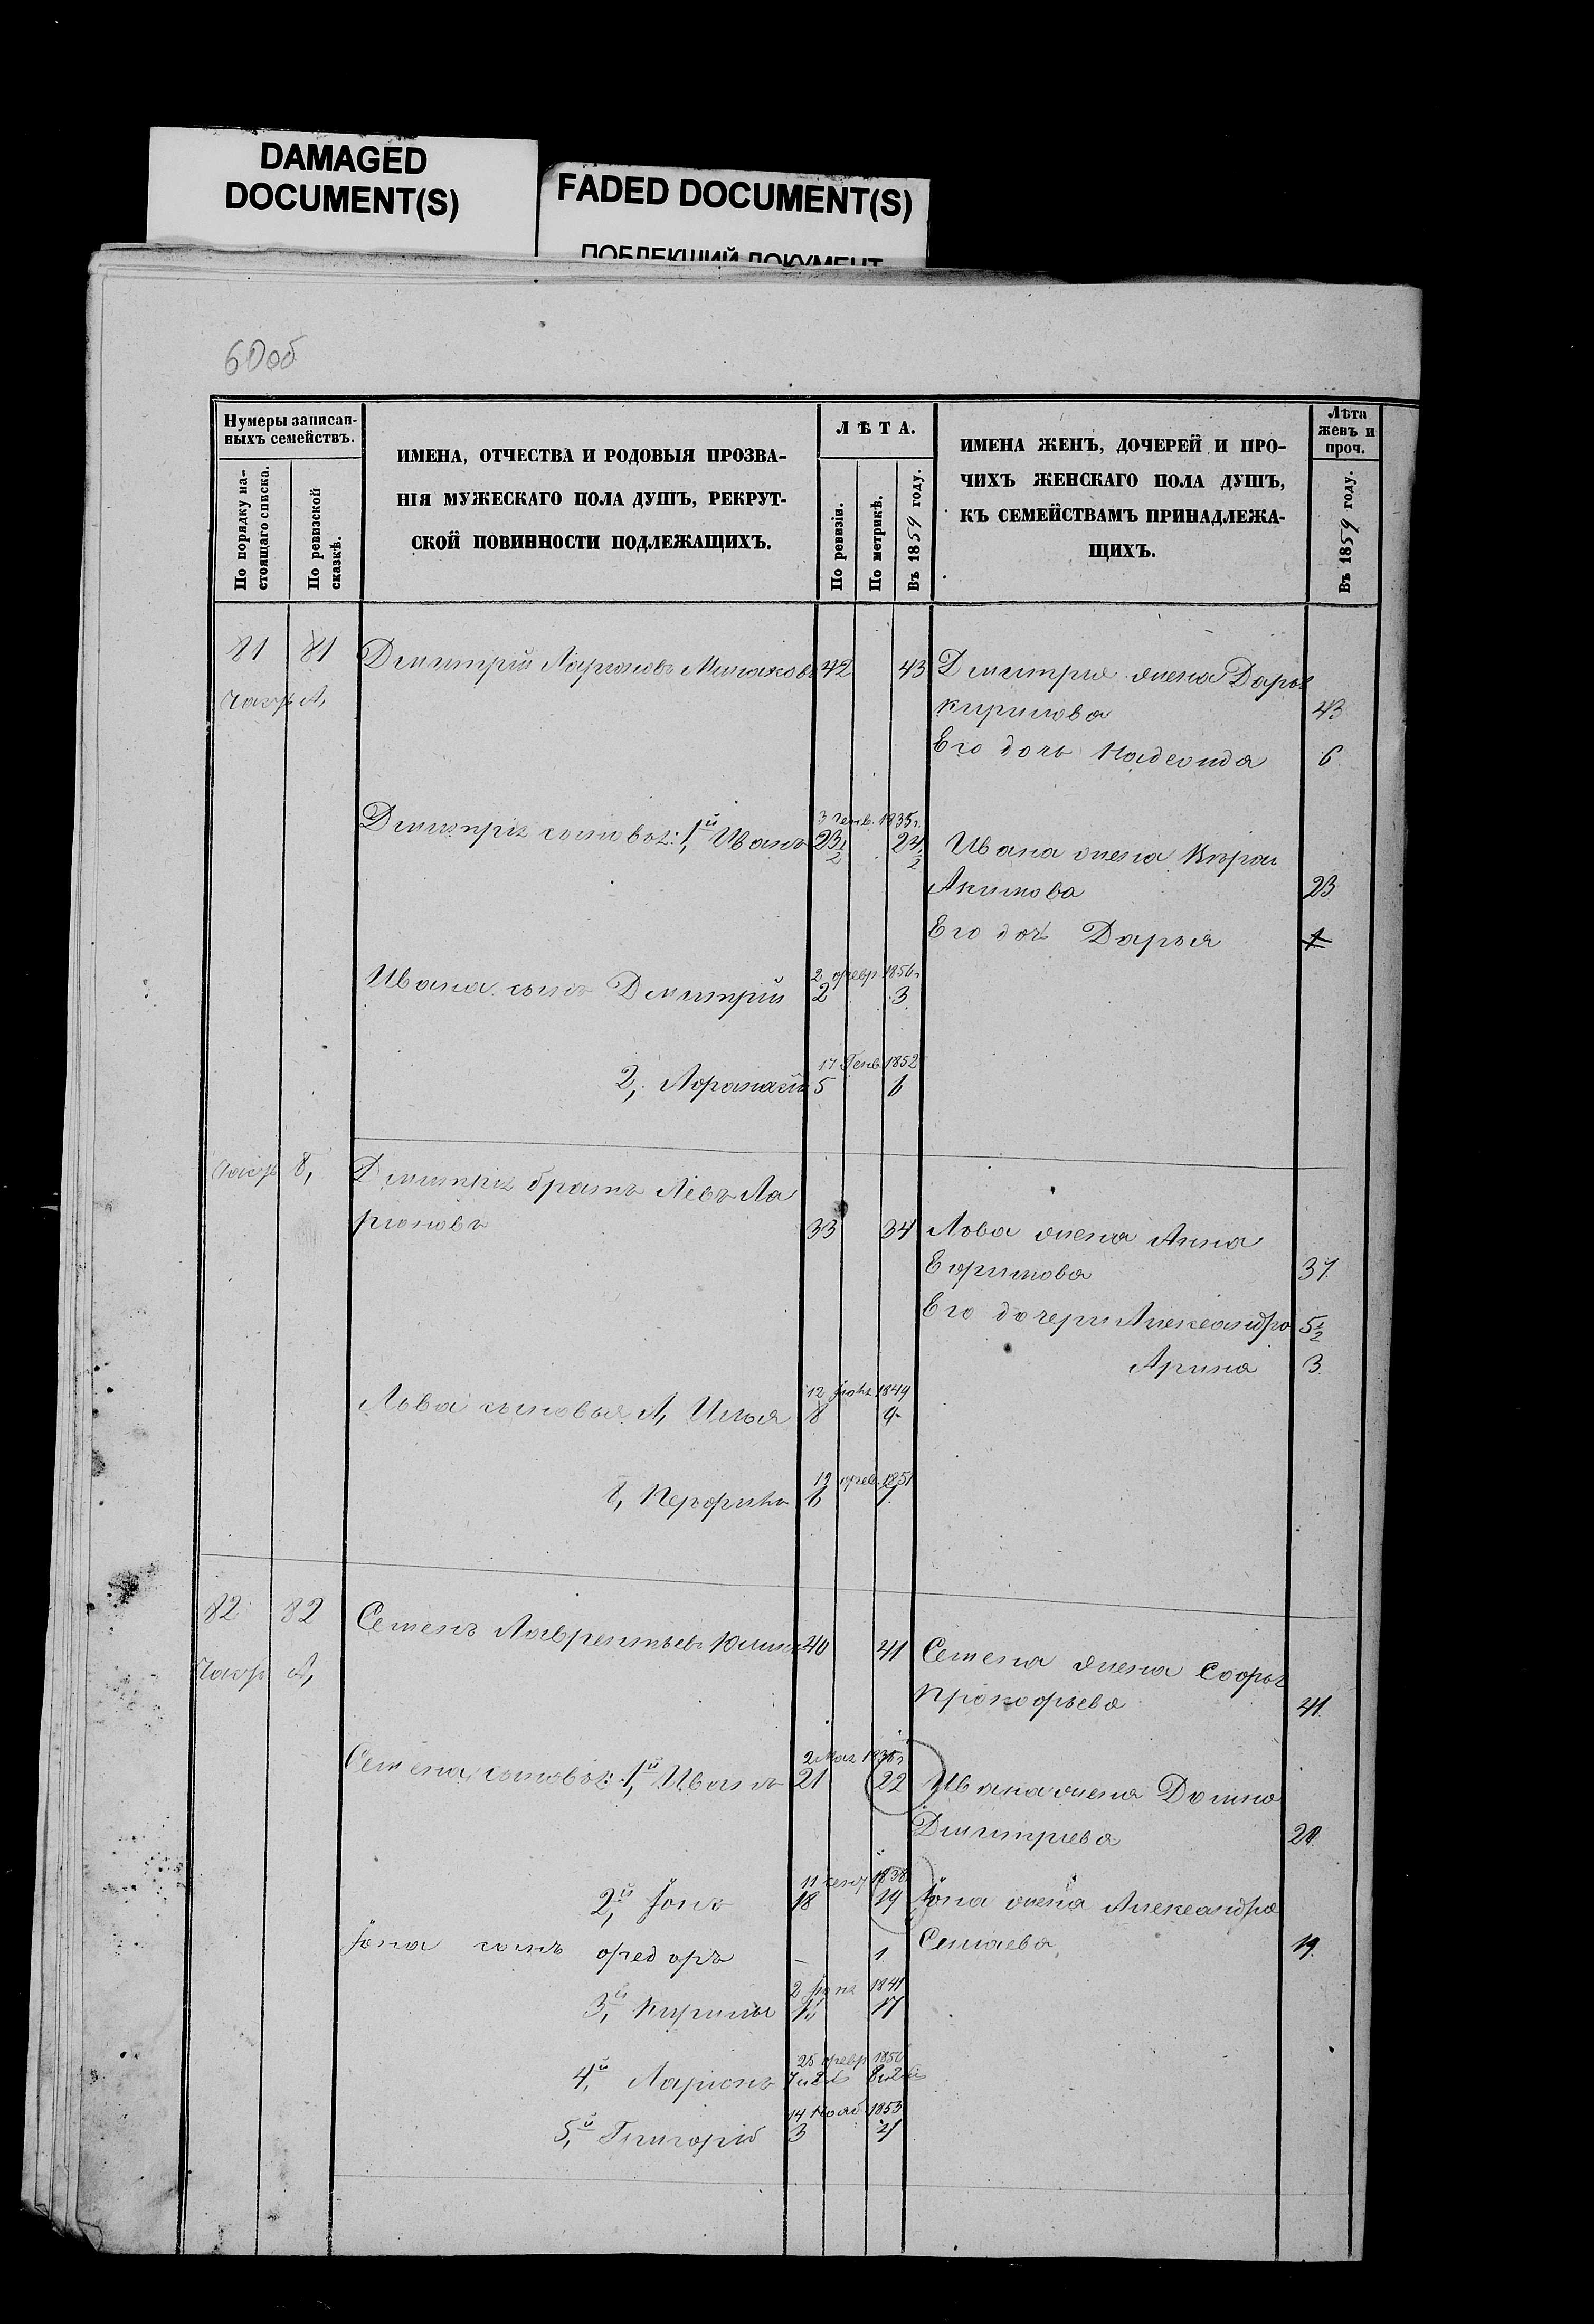 DAMAGED
DOCUMENT(S)
FADED DOCUMENT(S)
ПОБЛЕКШИЙ ДОКУМЕНТ
60об
Нумеры записан-
ныхъ семействъ.
По порядку на-
стоящаго списка.
По ревизской
сказкѣ.
ИМЕНА, ОТЧЕСТВА И РОДОВЫЯ ПРОЗВА-
НІЯ МУЖЕСКАГО ПОЛА ДУШЪ, РЕКРУТ-
СКОЙ ПОВИННОСТИ ПОДЛЕЖАЩИХЪ.
ЛѢТА.
По ревизіи.
По метрикѣ.
Въ 1859 году.
ИМЕНА ЖЕНЪ, ДОЧЕРЕЙ И ПРО-
ЧИХЪ ЖЕНСКАГО ПОЛА ДУШЪ,
КЪ СЕМЕЙСТВАМЪ ПРИНАДЛЕЖА-
ЩИХЪ.
Лѣта
женъ и
проч.
Въ 1859 году.
81 81 Дмитрій Ларионовъ 42 43 Дмитрия жена Дарья
кирилова 43
Его дочь Надежда 6
3 Генв. 1835г.
Дмитрія сыновья: 1й Иванъ 23½ 24½ Ивана жена
Акимова 23
Его доч Дарья 1
2 февр 1856г
Ивана сынъ Дмитрій 2 3
17 Генв 1852
2, Афанасій 5 6
Дмитрія братъ Левъ Ла
рионовъ 33 34 Лва жена Анна
Ефимова 37
Его дочери Александра 5½
Арина 3
12 1849
Лва сыновья А, Илья 8 9
19 фев. 1851
6 7
82 82 Семенъ Лаврентьевъ 40 41 Семена жена Софья
Прокофьева 41
2 Мая
Семена сыновья: 1й Иванъ 21 22 Ивана жена Домна
Дмитриева 20
11 сент 1838
2й Іонъ 18 19 Іона жена Александра
Іона сынъ федоръ – 1 19
2 1841
3й Кирилъ 17
25 февр 1850
4й Ларіонъ
14 Нояб 1853
5й Григорій 3 4